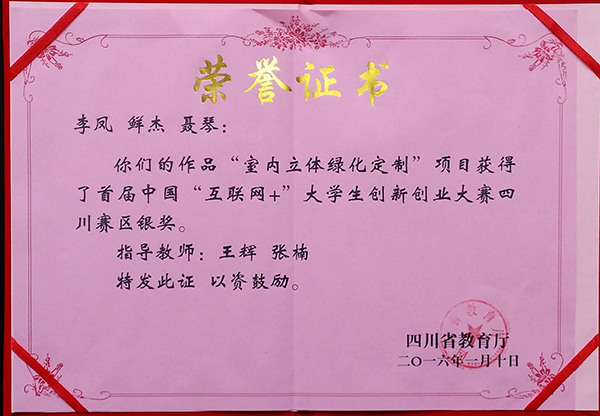 荣誉证书
李凤 鲜杰 聂琴：
你们的作品“室内立体绿化定制”项目获得
了首届中国“互联网+”大学生创新创业大赛四
川赛区银奖。
指导教师：王辉 张楠
特发此证 以资鼓励。
四川省教育厅
二〇一六年一月十日